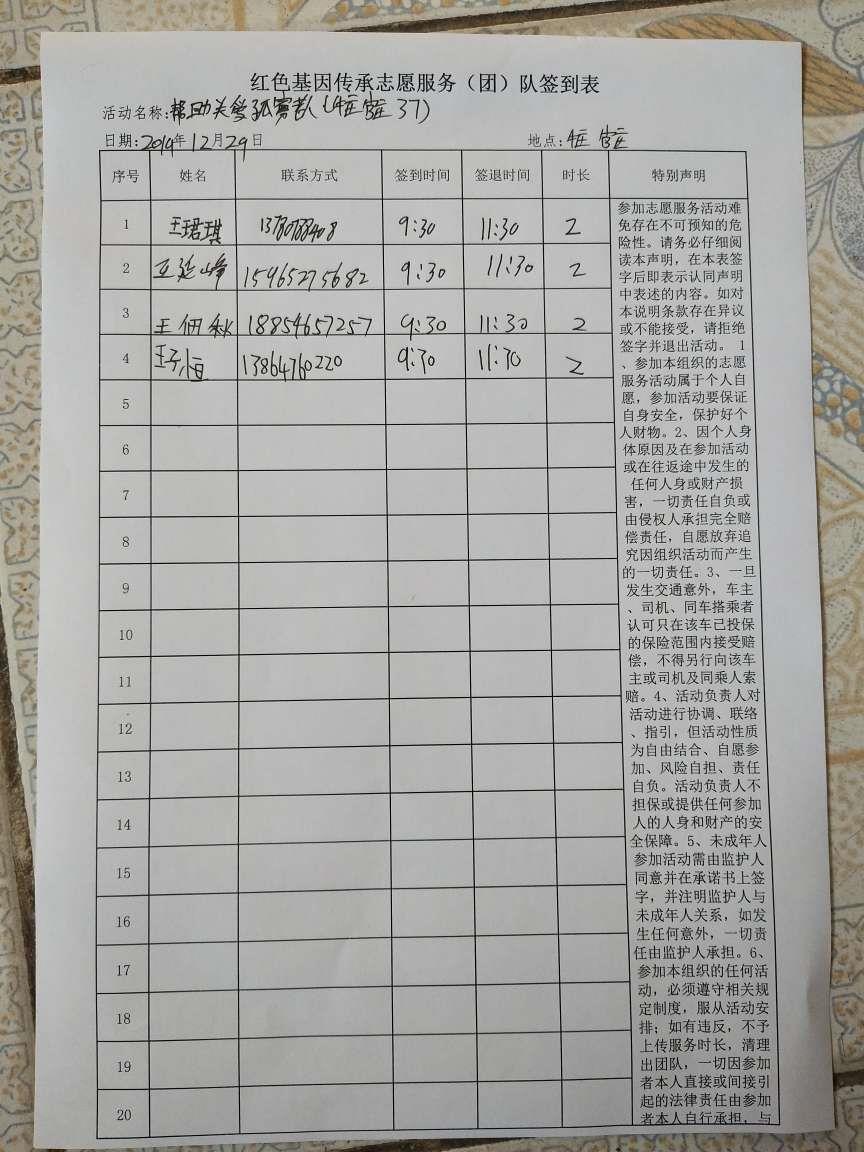 红色基因传承志愿服务（团）队签到表
活动名称:帮助关爱孤寡老人( 37)
日期:2019年12月29日 地点:
序号 姓名 联系方式 签到时间 签退时间 时长 特别声明
1 王珺琪 9:30 11:30 2
2 王延峰 15965275682 9:30 11:30 2
3 王佃秋 18854657257 9:30 11:30 2
4 王子恒 13864760220 9:30 11:30 2
5
6
7
8
9
10
11
12
13
14
15
16
17
18
19
20
参加志愿服务活动难
免存在不可预知的危
险性。请务必仔细阅
读本声明，在本表签
字后即表示认同声明
中表述的内容。如对
本说明条款存在异议
或不能接受，请拒绝
签字并退出活动。 1
、参加本组织的志愿
服务活动属于个人自
愿，参加活动要保证
自身安全，保护好个
人财物。2、因个人身
体原因及在参加活动
或在往返途中发生的
任何人身或财产损
害，一切责任自负或
由侵权人承担完全赔
偿责任，自愿放弃追
究因组织活动而产生
的一切责任。3、一旦
发生交通意外，车主
、司机、同车搭乘者
认可只在该车已投保
的保险范围内接受赔
偿，不得另行向该车
主或司机及同乘人索
赔。4、活动负责人对
活动进行协调、联络
、指引，但活动性质
为自由结合、自愿参
加、风险自担、责任
自负。活动负责人不
担保或提供任何参加
人的人身和财产的安
全保障。5、未成年人
参加活动需由监护人
同意并在承诺书上签
字，并注明监护人与
未成年人关系，如发
生任何意外，一切责
任由监护人承担。6、
参加本组织的任何活
动，必须遵守相关规
定制度，服从活动安
排；如有违反，不予
上传服务时长，清理
出团队，一切因参加
者本人直接或间接引
起的法律责任由参加
者本人自行承担，与